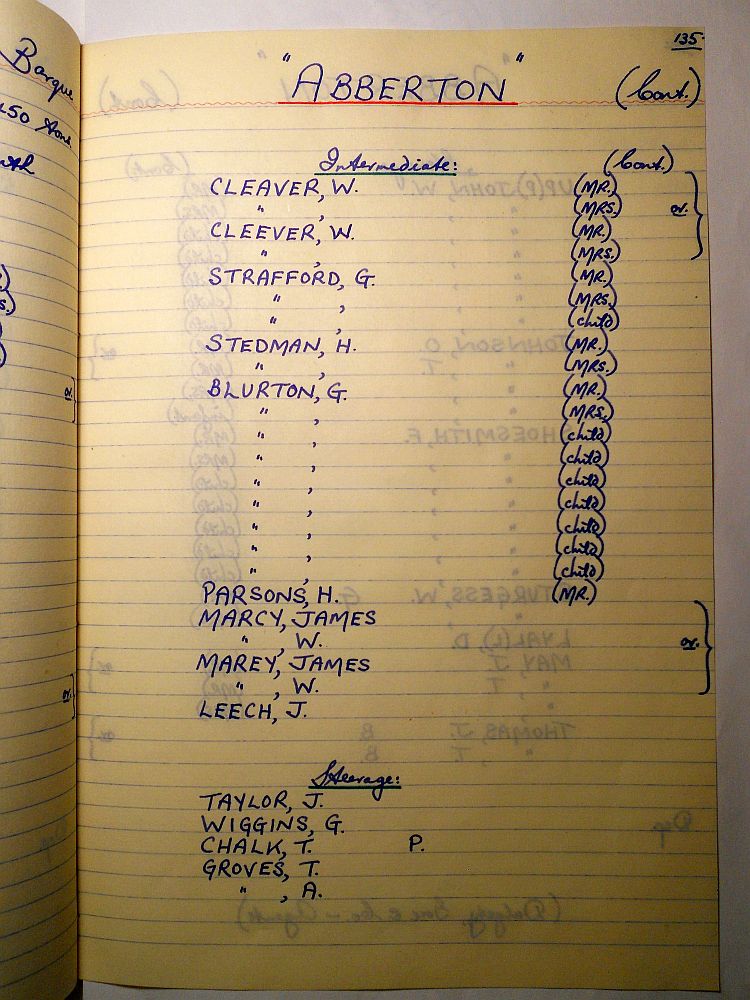 135
"ABBERTON" (Cont.)
Intermediate: (Cont.)
CLEAVER, W. (MR.)
" , (MRS.) or.
CLEEVER, W. (MR.)
" , (MRS.)
STRAFFORD, G. (MR.)
" , (MRS.)
" , (child)
STEDMAN, H. (MR.)
" , (MRS.)
BLURTON, G. (MR.)
" , (MRS.)
" , (child)
" , (child)
" , (child)
" , (child)
" , (child)
" , (child)
" , (child)
PARSONS, H. (MR.)
MARCY, JAMES
" , W. or.
MAREY, JAMES
" , W.
LEECH, J.
Steerage:
TAYLOR, J.
WIGGINS, G.
CHALK, T. P.
GROVES, T.
" , A.
Barque
450 tons
or.
or.